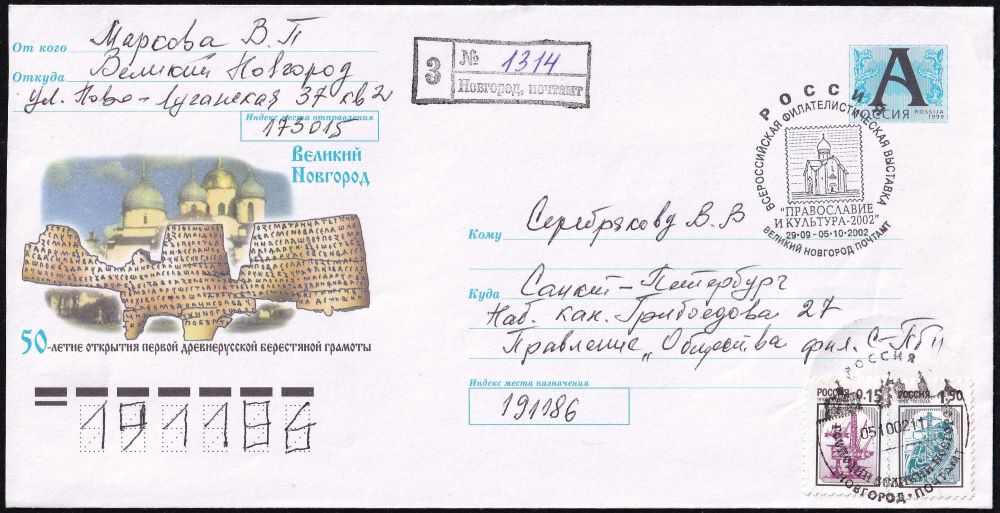 От кого Маркова В. П
Откуда Великий Новгород
ул. Ново-Луганская 37 кв 2
Индекс места отправления
173015
З № 1314
Новгород, почтамт
А
РОССИЯ ROSSIJA 1999
РОССИЯ
ВСЕРОССИЙСКАЯ ФИЛАТЕЛИСТИЧЕСКАЯ ВЫСТАВКА
"ПРАВОСЛАВИЕ
И КУЛЬТУРА-2002"
29.09 - 05.10.2002
ВЕЛИКИЙ НОВГОРОД ПОЧТАМТ
Великий
Новгород
50-летие открытия первой древнерусской берестяной грамоты
Кому Серебрякову В. В
Куда Санкт-Петербург
Наб. кан. Грибоедова 27
Правление „Общества фил. С-Пб"
Индекс места назначения
191186
191186
РОССИЯ
РОССИЯ 0.15
РОССИЯ 1.50
05100211
НОВГОРОД, ПОЧТАМТ